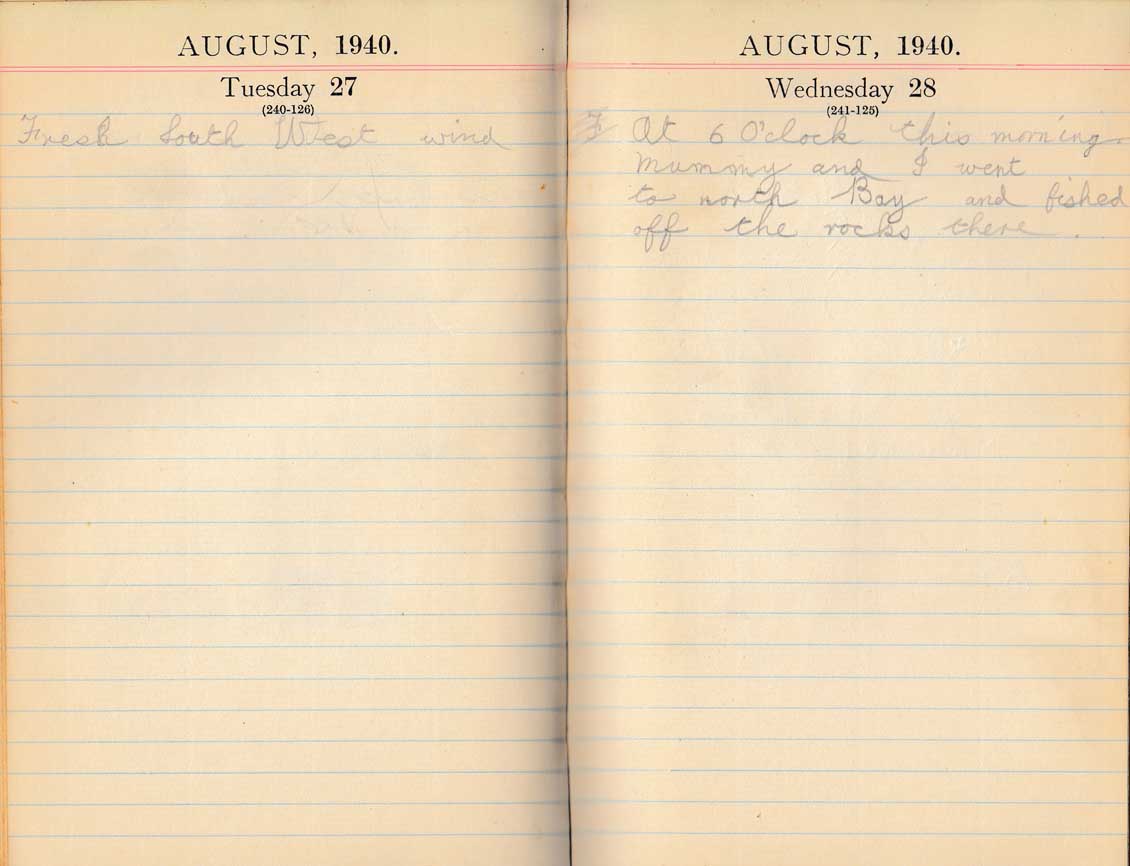 AUGUST, 1940.
Tuesday 27
(240-126)
Fresh South West wind
AUGUST, 1940.
Wednesday 28
(241-125)
F At 6 O'clock this morning.
Mummy and I went
to north Bay and fished
off the rocks there .